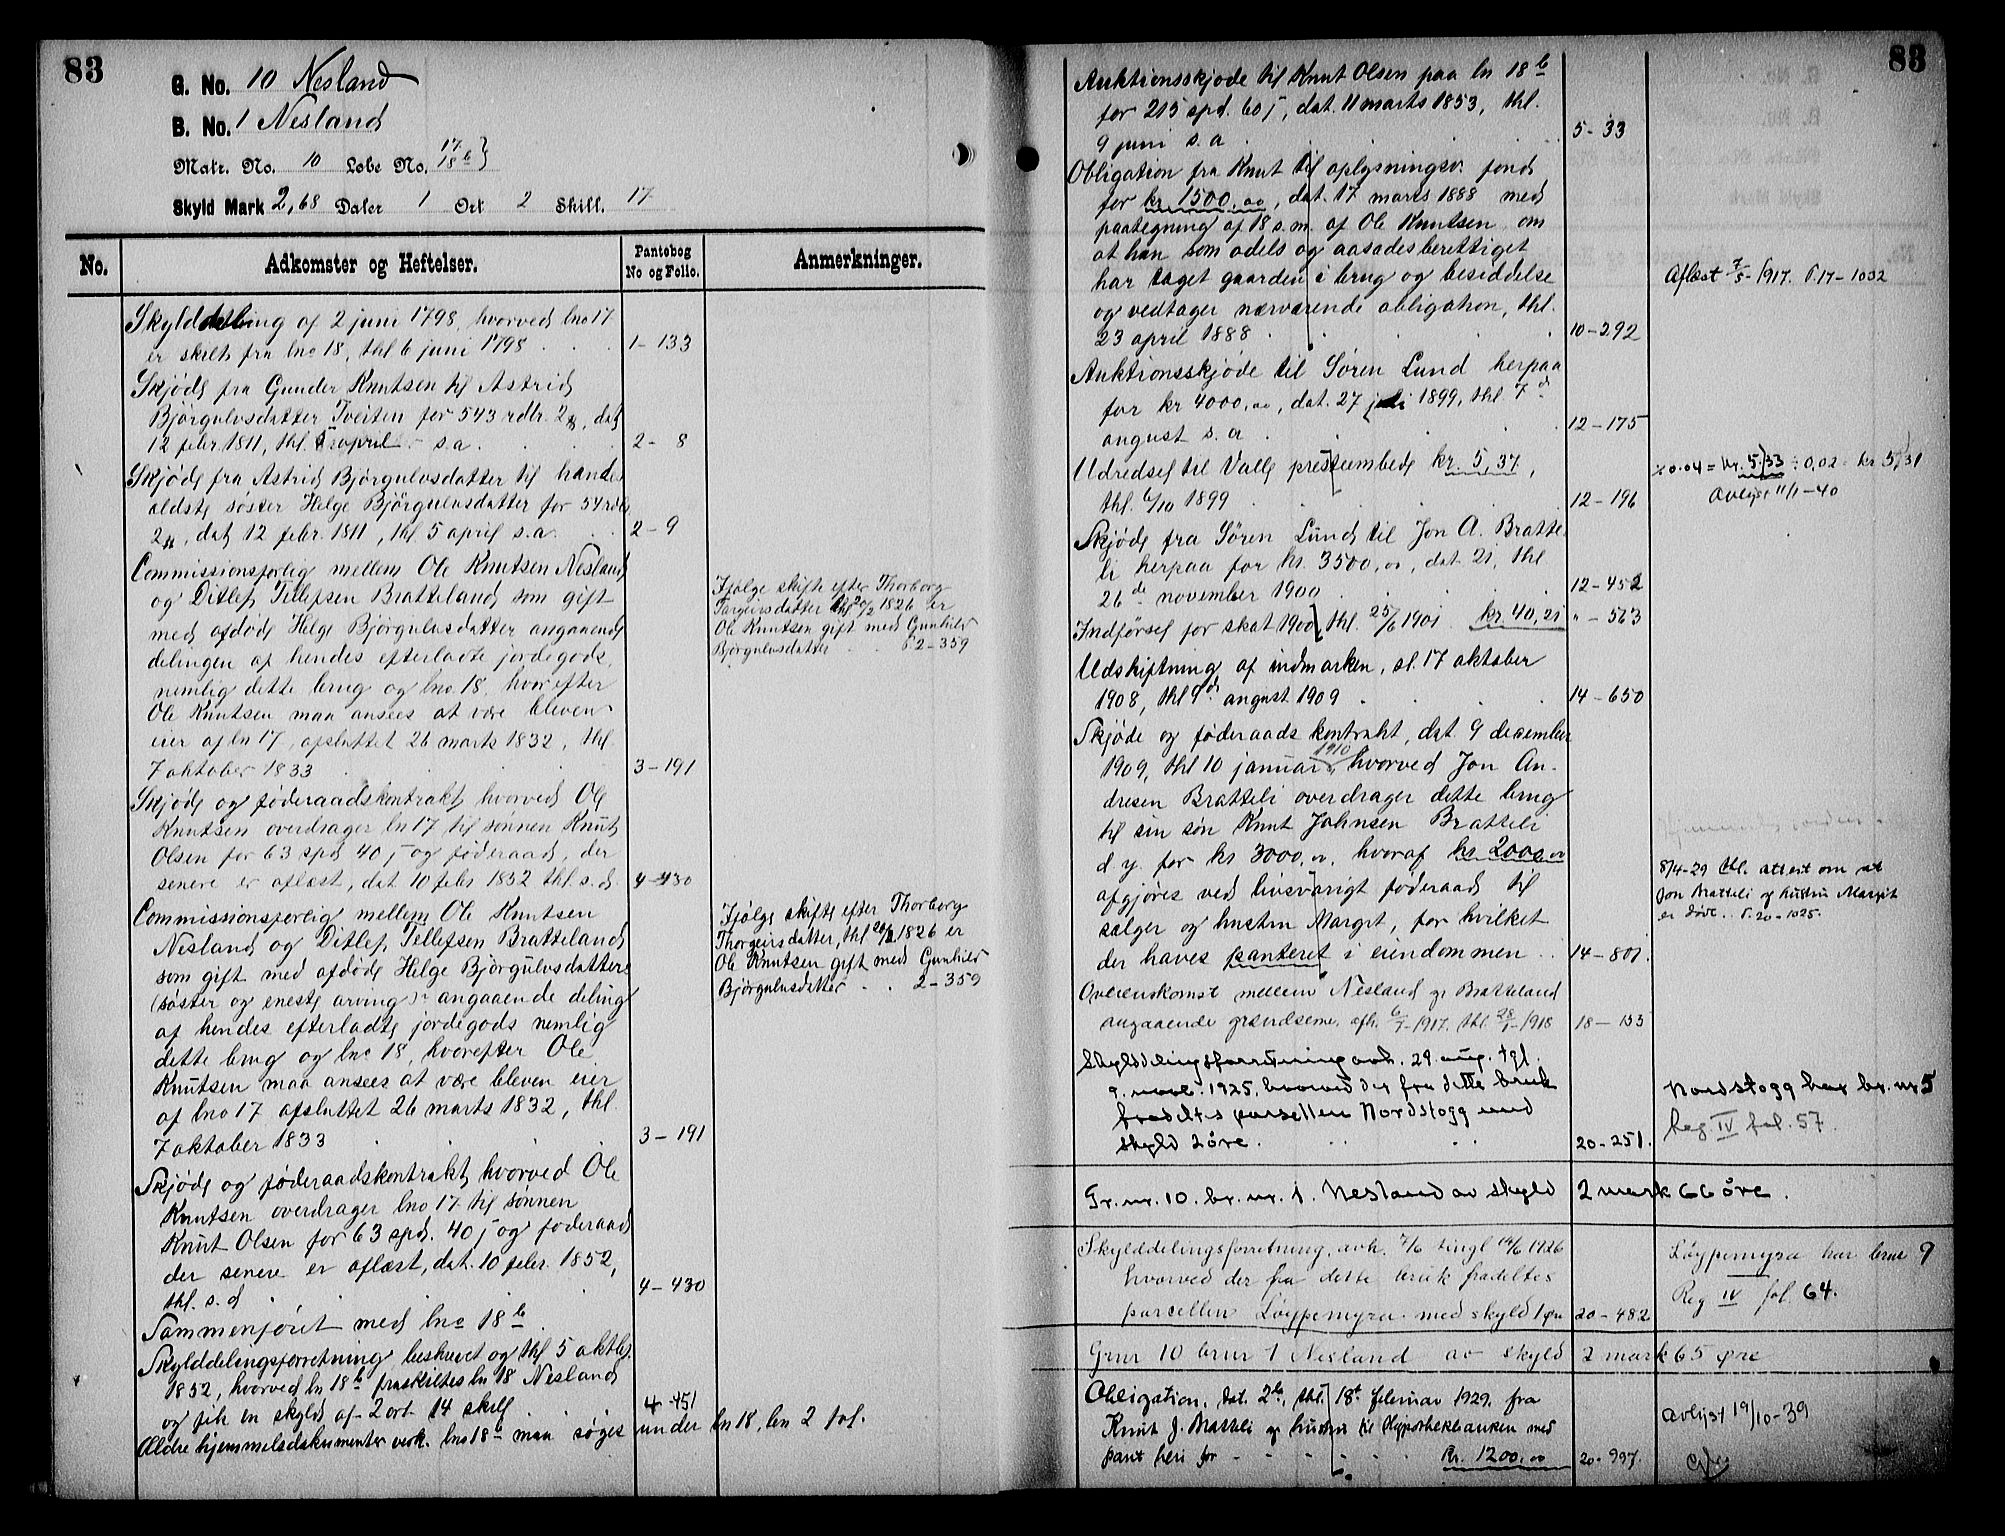 83
G. No. 10 Nesland
B. No. 1 Nesland
Matr. No. 10 Løbe No. 17 18 b}
Skyld Mark 2,68 Daler 1 Ort 2 Skill. 17
No. Adkomster og Heftelser. Pantebog No og Folio. Anmerkninger.
Skylddeling af 2 juni 1798, hvorved lno 17
er skilt fra lno 18, thl 6 juni 1798 1-133
Skjøde fra Gunder Knutsen til Astrid
Bjørgulvsdatter Tveiten for 543 rdlr. 2, dat
12 febr. 1811, thl. 5 april - s.a. 2- 8
Skjøde fra Astrid Bjørgulvsdatter til hendes
ældste søster Helge Bjørgulvsdatter for 54 rdlr
2, dat 12 febr. 1811, thl 5 april s.a. 2-9
Commissionsforlig mellem Ole Knutsen Nesland
og Ditlef Tellefsen Bratteland som gift
med afdøde Helge Bjørgulvsdatter angaaende
delingen af hendes efterladte jordegods,
nemlig dette brug og lno 18, hvorefter
Ole Knutsen maa ansees at være bleven
eier af ln 17, afsluttet 26 marts 1832, thl
7 oktober 1833 3-191
Ifølge skifte efter Thorborg
Targeirsdatter thl 20/2 1826 er
Ole Knutsen gift med Gunhild
Bjørgulvsdatter P. 2-359
Skjøde og føderaadskontrakt hvorved Ole
Knutsen overdrager ln 17 til sønnen Knut
Olsen for 63 spd 40 j og føderaad, der
senere er aflæst, dat 10 febr 1832 thl. s.d. 4-430
Commissionsforlig mellem Ole Knutsen
Nesland og Ditlef Tellefsen Bratteland
som gift med afdøde Helge Bjørgulvsdatter
(søster og eneste arving) angaaende deling
af hendes efterladte jordegods nemlig
dette brug og lno 18, hvorefter Ole
Knutsen maa ansees at være bleven eier
af lno 17 afsluttet 26 marts 1832, thl.
7 oktober 1833 3-191
Ifølge skifte efter Thorborg
Thorgeirsdatter, thl 20/2 1826 er
Ole Knutsen gift med Gunhild
Bjørgulvsdatter 2-359
Skjøde og føderaadskontrakt hvorved Ole
Knutsen overdrager lno 17 til sønnen
Knut Olsen for 63 spd. 40 j og føderaad
der senere er aflæst, dat. 10 febr. 1852,
thl. s.d 4-430
Sammenføiet med lno 18 b
Skylddelingsforretning beskrevet og thl 5 oktbr.
1852, hvorved ln 18 b fraskiltes ln 18 Nesland
og fik en skyld af 2 ort 14 skill 4-451
Ældre hjemmelsdokumenter vedk. lno 18 b maa søges under ln 18, bn 2 fol.
83
Auktionsskjøde til Knut Olsen paa ln 18 b
for 215 spd. 60 j, dat. 11 marts 1853, thl.
9 juni s.a 5-33
Obligation fra Knut til oplysningsv. fond
for kr. 1500,00, dat. 17 marts 1888 med
paategning af 18 s.m. af Ole Knutsen om
at han som odels og aasædesberettiget
har taget gaarden i brug og besiddelse
og vedtager nærværende obligation, thl.
23 april 1888 10-292
Aflæst 7/5-1917. P. 17-1032
Auktionsskjøde til Søren Lund herpaa
for kr 4000,00, dat. 27 juli 1899, thl. 7 d
august s.a 12-175
Udredsel til Valle prestembede kr. 5,37,
thl. 6/10 1899 12-196
% 0.04 = kr. 5.33 ÷ 0,02 = kr 5,31
Avlyst 11/1-40
Skjøde fra Søren Lund til Jon A. Bratte-
li herpaa for kr. 3500,00, dat. 21, thl
26 de november 1900 12-452
Indførsel for skat 1900, thl. 25/6 1901 kr. 40,21 "-563
Udskiftning af indmarken, sl. 17 oktober
1908, thl 9 de august 1909 14-650
Skjøde og føderaads kontrakt, dat. 9 december
1909, thl 10 januar 1910, hvorved Jon An-
dresen Bratteli overdrager dette brug
til sin søn Knut Johnsen Bratteli
d.y. for kr 3000,00, hvoraf kr. 2000,00
afgjøres ved livsvarigt føderaad til
sælger og hustru Margit, for hvilket
der haves panteret i eiendommen 14-801
8/4-29 thl. attest om at
Jon Bratteli og hustru Margit
er døde. P. 20-1025.
Overenskomst mellem Nesland og Bratteland
angaaende grændserne, afh. 6/7-1917. thl. 28/1-1918 18-155
Skylddelingsforretning avh. 29 aug. tgl.
9. nov. 1925, hvorved der fra dette bruk
fradeltes parsellen Nordstogg med
skyld 2 øre. 20-251.
Nordstogg har br. nr 5
Reg IV fol. 57.
Gr. nr. 10. br. nr. 1. Nesland av skyld 2 mark 66 øre.
Skylddelingsforretning avh. 7/6 tingl 14/6 1926
hvorved der fra dette bruk fradeltes
parcellen Løypemyra med skyld 1 øre 20-482
Løypemyra har brnr 9
Reg IV fol. 64.
Grnr 10 brnr 1 Nesland av skyld 2 mark 65 øre
Obligation, dat. 2, thl. 18 februar 1929, fra
Knut J. Bratteli og hustru til Hypothekbanken med
pant heri for Kr. 1200,00 20-997.
Avlyst 19/10-39